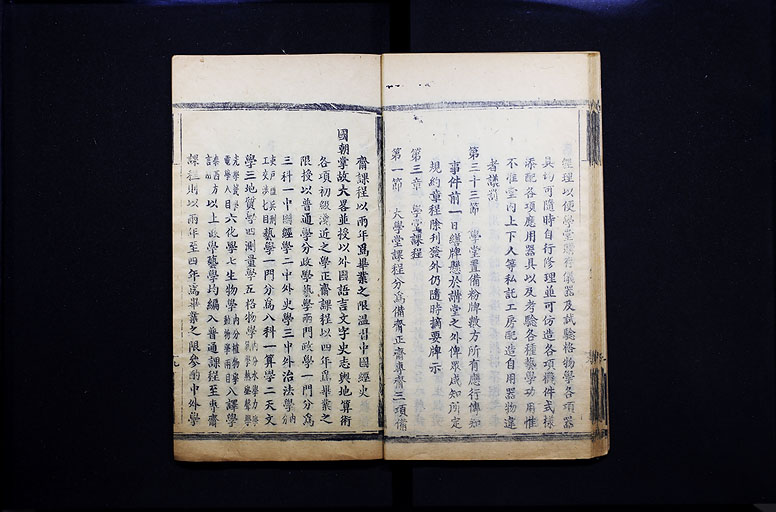 經理以便學堂所有儀器及試驗格物學各項器
具均可隨時自行修理並可仿造各項機件式樣
添配各項應用器具以及考驗各種藝學功用惟
不准堂內上下人等私託工房配造自用器物違
者議罰
第三十三節 學堂置備粉牌數方所有應行傳知
事件前一日繕牌懸於講堂之外俾眾咸知所定
規約章程除刊發外仍隨時摘要牌示
第三章 學堂課程
第一節 大學堂課程分爲備齋正齋專齋三項備
齋課程以兩年爲畢業之限溫習中國經史
國朝掌故大畧並授以外國語言文字史志輿地算術
各項初級淺近之學正齋課程以四年爲畢業之
限授以普通學分政學藝學兩門政學一門分爲
三科一中國經學二中外史學三中外治法學內分
吏戶禮兵刑工交涉七目藝學一門分爲八科一算學二天文
學三地質學四測量學五格物學內分水學力學氣學熱學聲學
光學磁學電學八目六化學七生物學內分植物學動物學兩目八譯學
泰西方言以上政學藝學均編入普通課程至專齋
課程則以兩年至四年爲畢業之限參酌中外學